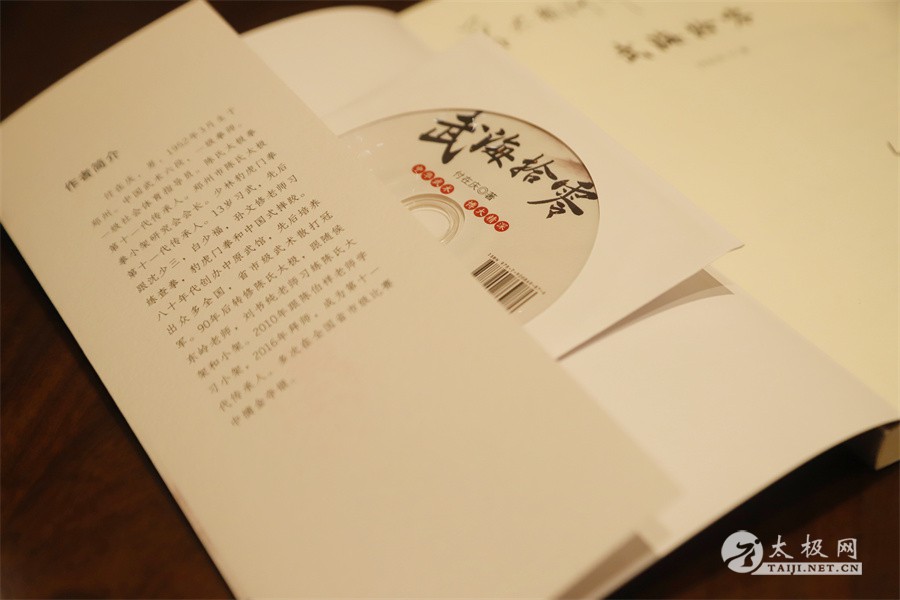 作者简介
付在庆，男，1952年3月生于
郑州。中国武术六段，一级拳师，
一级社会体育指导员，陈氏太极拳
第十一代传承人。郑州市陈氏太极
拳小架研究会会长。少林豹虎门拳
第十一代传承人。13岁习武，先后
跟沈少三，白少福，孙文修老师习
练查拳，豹虎门拳和中国式摔跤。
八十年代创办中原武馆，先后培养
出众多全国，省市级武术散打冠
军。90年后转修陈氏太极，跟随侯
东岭老师，刘书钝老师习练陈氏大
架和小架。2010年跟陈伯祥老师学
习小架，2016年拜师，成为第十一
代传承人。多次在全国省市级比赛
中摘金夺银。
武海拾零
付在庆◎著
博大精深
武海拾零
太极网
TAIJI.NET.CN